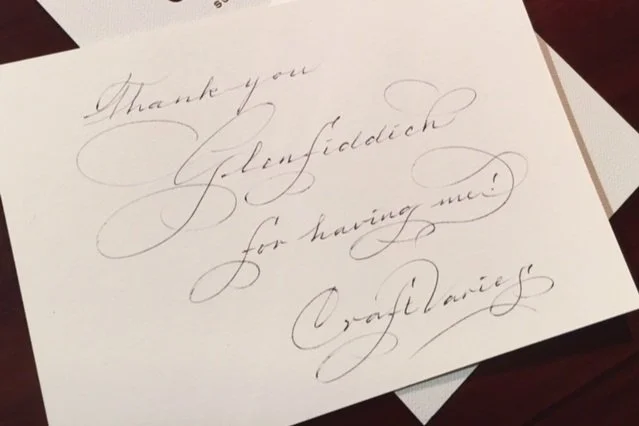 Thank you
Glenfiddich
for having me!
CraftVaries